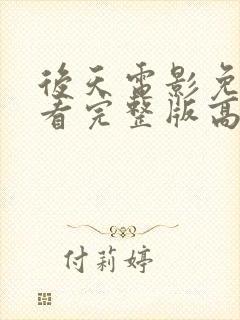 後天電影免
看完整版高
付莉婷